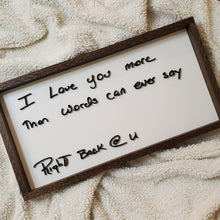 I Love you more
Than words can ever say
Right Back @ U